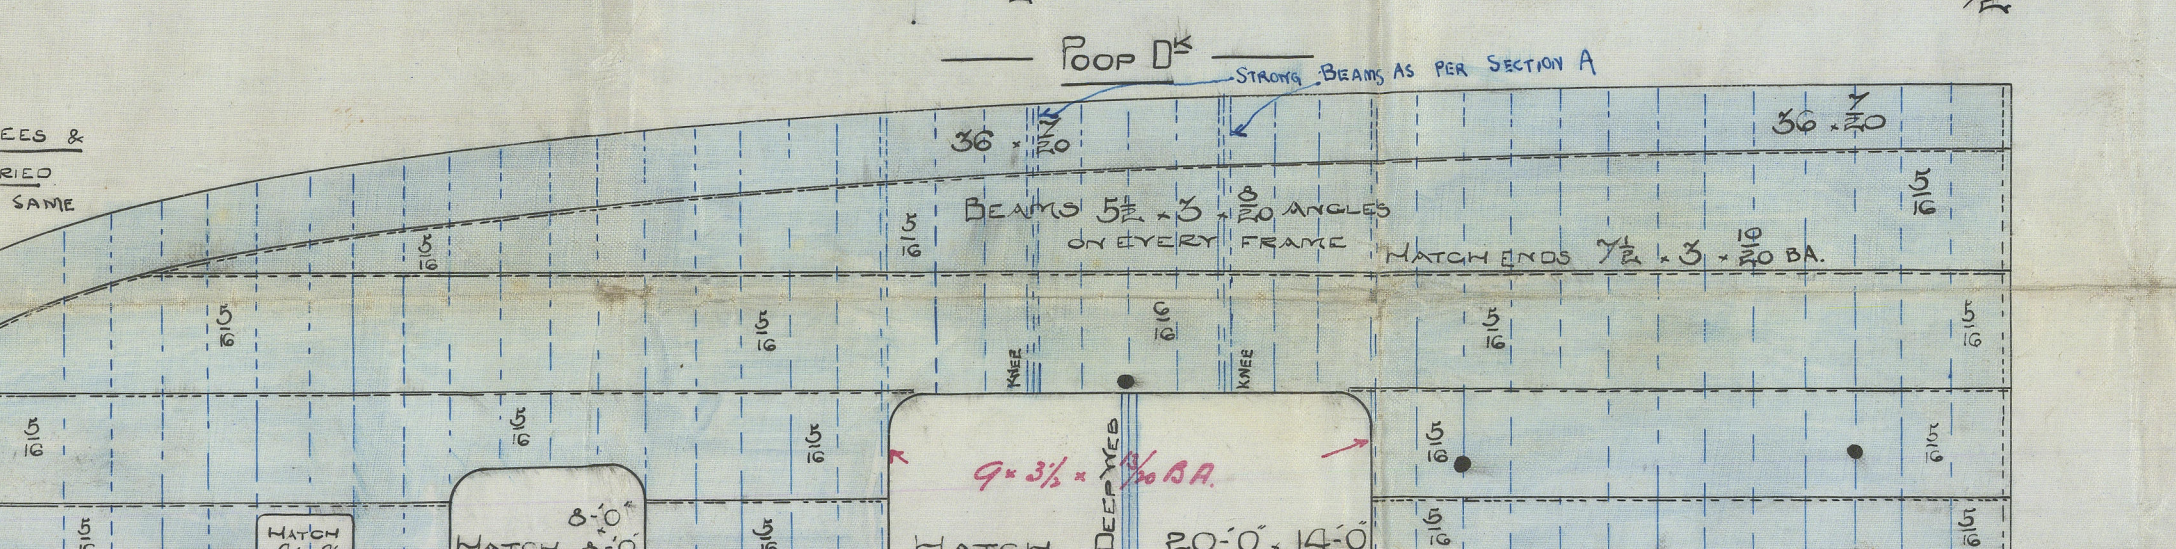 POOP Dᴷ
STRONG BEAMS AS PER SECTION A
EES &
RIED
SAME
36 × 7/20
36 × 7/20
BEAMS 5½ × 3 × 8/20 ANGLES
ON EVERY FRAME
HATCH ENDS 7½ × 3 × 10/20 BA.
5/16
5/16
5/16
5/16
5/16
6/16
5/16
5/16
KNEE
KNEE
5/16
5/16
5/16
5/16
5/16
DEEP WEB
9 × 3½ × 13/20 BA.
8'-0"
HATCH
HATCH
HATCH
20'-0" × 14'-0"
5/16
5/16
5/16
5/16